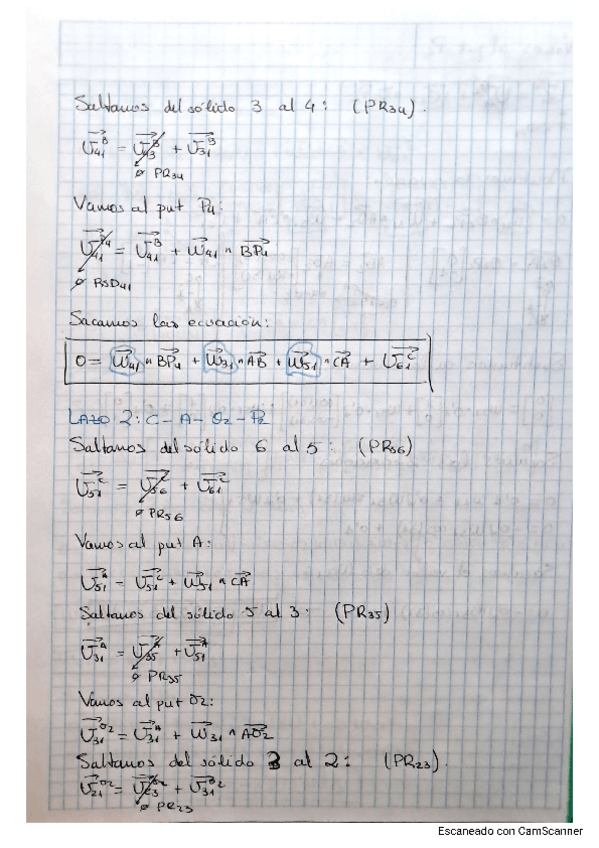 Saltamos del sólido 3 al 4: (PR34).
U⃗41^B = U⃗43^B + U⃗31^B
∅ PR34
Vamos al put P4:
U⃗41^P4 = U⃗41^B + W⃗41 ^ BP⃗4
∅ RSD41
Sacamos las ecuación:
0 = W⃗41 ^ BP⃗4 + W⃗31 ^ AB⃗ + W⃗51 ^ CA⃗ + U⃗61^C
LAZO 2: C - A - O2 - P2
Saltamos del sólido 6 al 5: (PR56)
U⃗51^C = U⃗56^C + U⃗61^C
∅ PR56
Vamos al put A:
U⃗51^A = U⃗51^C + W⃗51 ^ CA⃗
Saltamos del sólido 5 al 3: (PR35)
U⃗31^A = U⃗35^A + U⃗51^A
∅ PR35
Vamos al put O2:
U⃗31^O2 = U⃗31^A + W⃗31 ^ AO⃗2
Saltamos del sólido 3 al 2: (PR23).
U⃗21^O2 = U⃗23^O2 + U⃗31^O2
∅ PR23
Escaneado con CamScanner